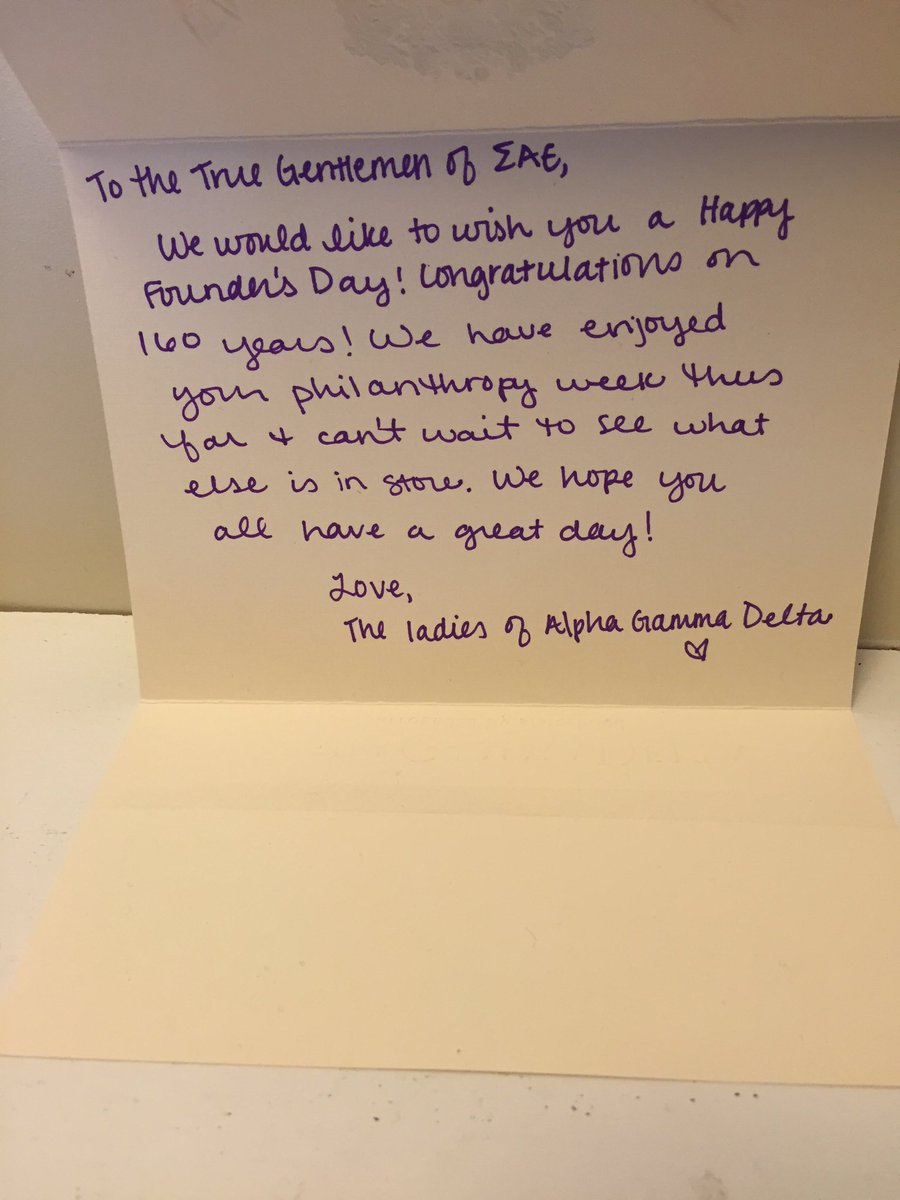 To the True Gentlemen of ΣAE,
We would like to wish you a Happy
Founder's Day! Congratulations on
160 years! We have enjoyed
your philanthropy week thus
far & can't wait to see what
else is in store. We hope you
all have a great day!
Love,
The ladies of Alpha Gamma Delta